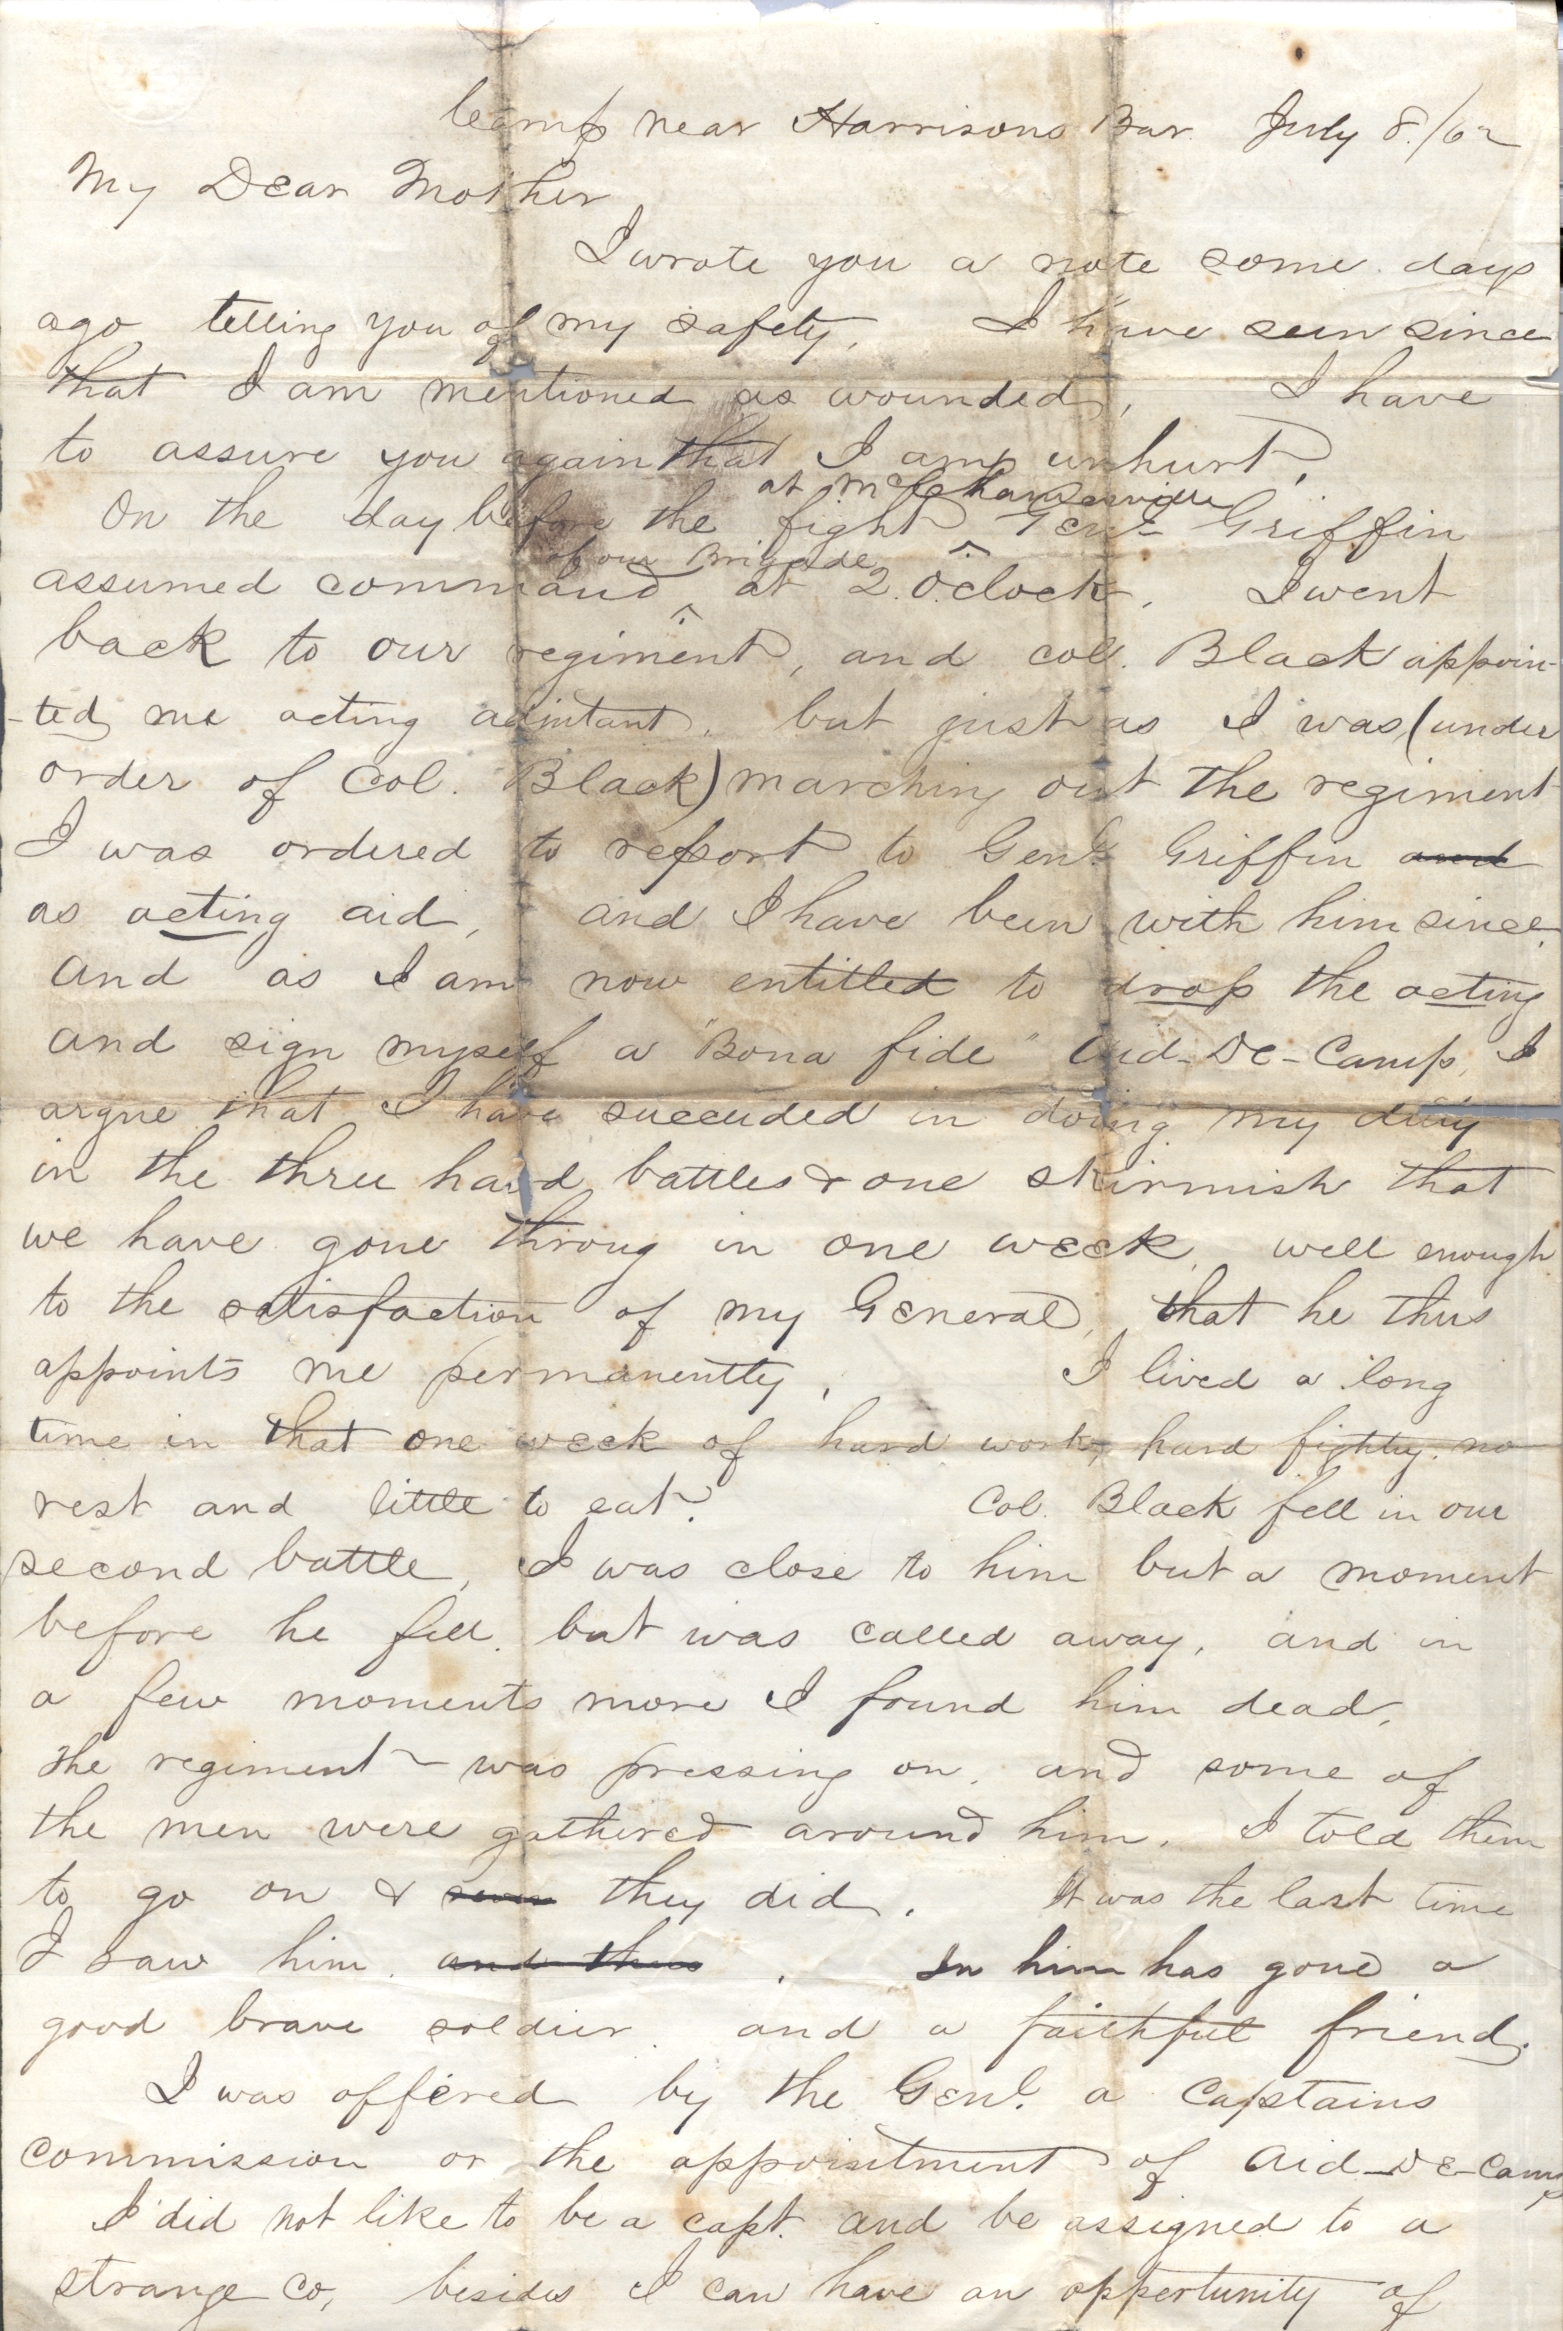 Camp near Harrisons Bar July 8./62
My Dear Mother
I wrote you a note some days
ago telling you of my safety, I have seen since
that I am mentioned as wounded, I have
to assure you again that I am unhurt,
at Mechanicsville
On the day before the fight Genl Griffin
of our Brigade
assumed command at 2. O'clock, I went
back to our regiment, and col. Black appoin-
-ted me acting adjutant, but just as I was (under
order of Col. Black) marching out the regiment
I was ordered to report to Genl. Griffin and
as acting aid, and I have been with him since,
and as I am now entitled to drop the acting
and sign myself a "Bona fide" Aid-De-Camp, I
argue that I have succeeded in doing my duty
in the three hard battles & one skirmish that
we have gone throug in one week, well enough
to the satisfaction of my General, that he thus
appoints me permanently, I lived a long
time in that one week of hard work, hard fighting, no
rest and little to eat. Col. Black fell in our
second battle, I was close to him but a moment
before he fell, but was called away, and in
a few moments more I found him dead,
the regiment was pressing on, and some of
the men were gathered around him, I told them
to go on & they did. It was the last time
I saw him, and thus . In him has gone a
good brave soldier and a faithful friend.
I was offered by the Genl. a Captains
commission or the appointment of Aid-De-Camp
I did not like to be a capt. and be assigned to a
strange Co, besides I can have an oppertunity of